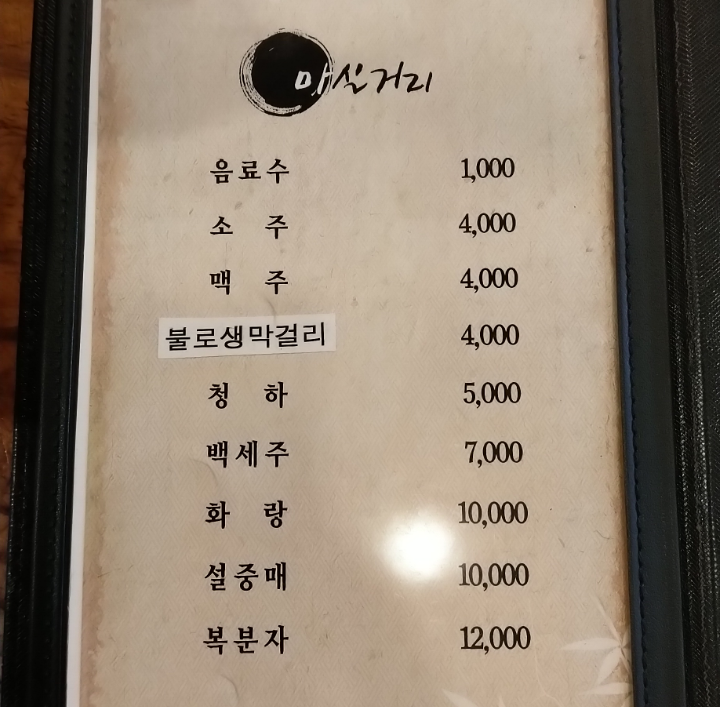 마실거리
음료수 1,000
소 주 4,000
맥 주 4,000
불로생막걸리 4,000
청 하 5,000
백세주 7,000
화 랑 10,000
설중매 10,000
복분자 12,000